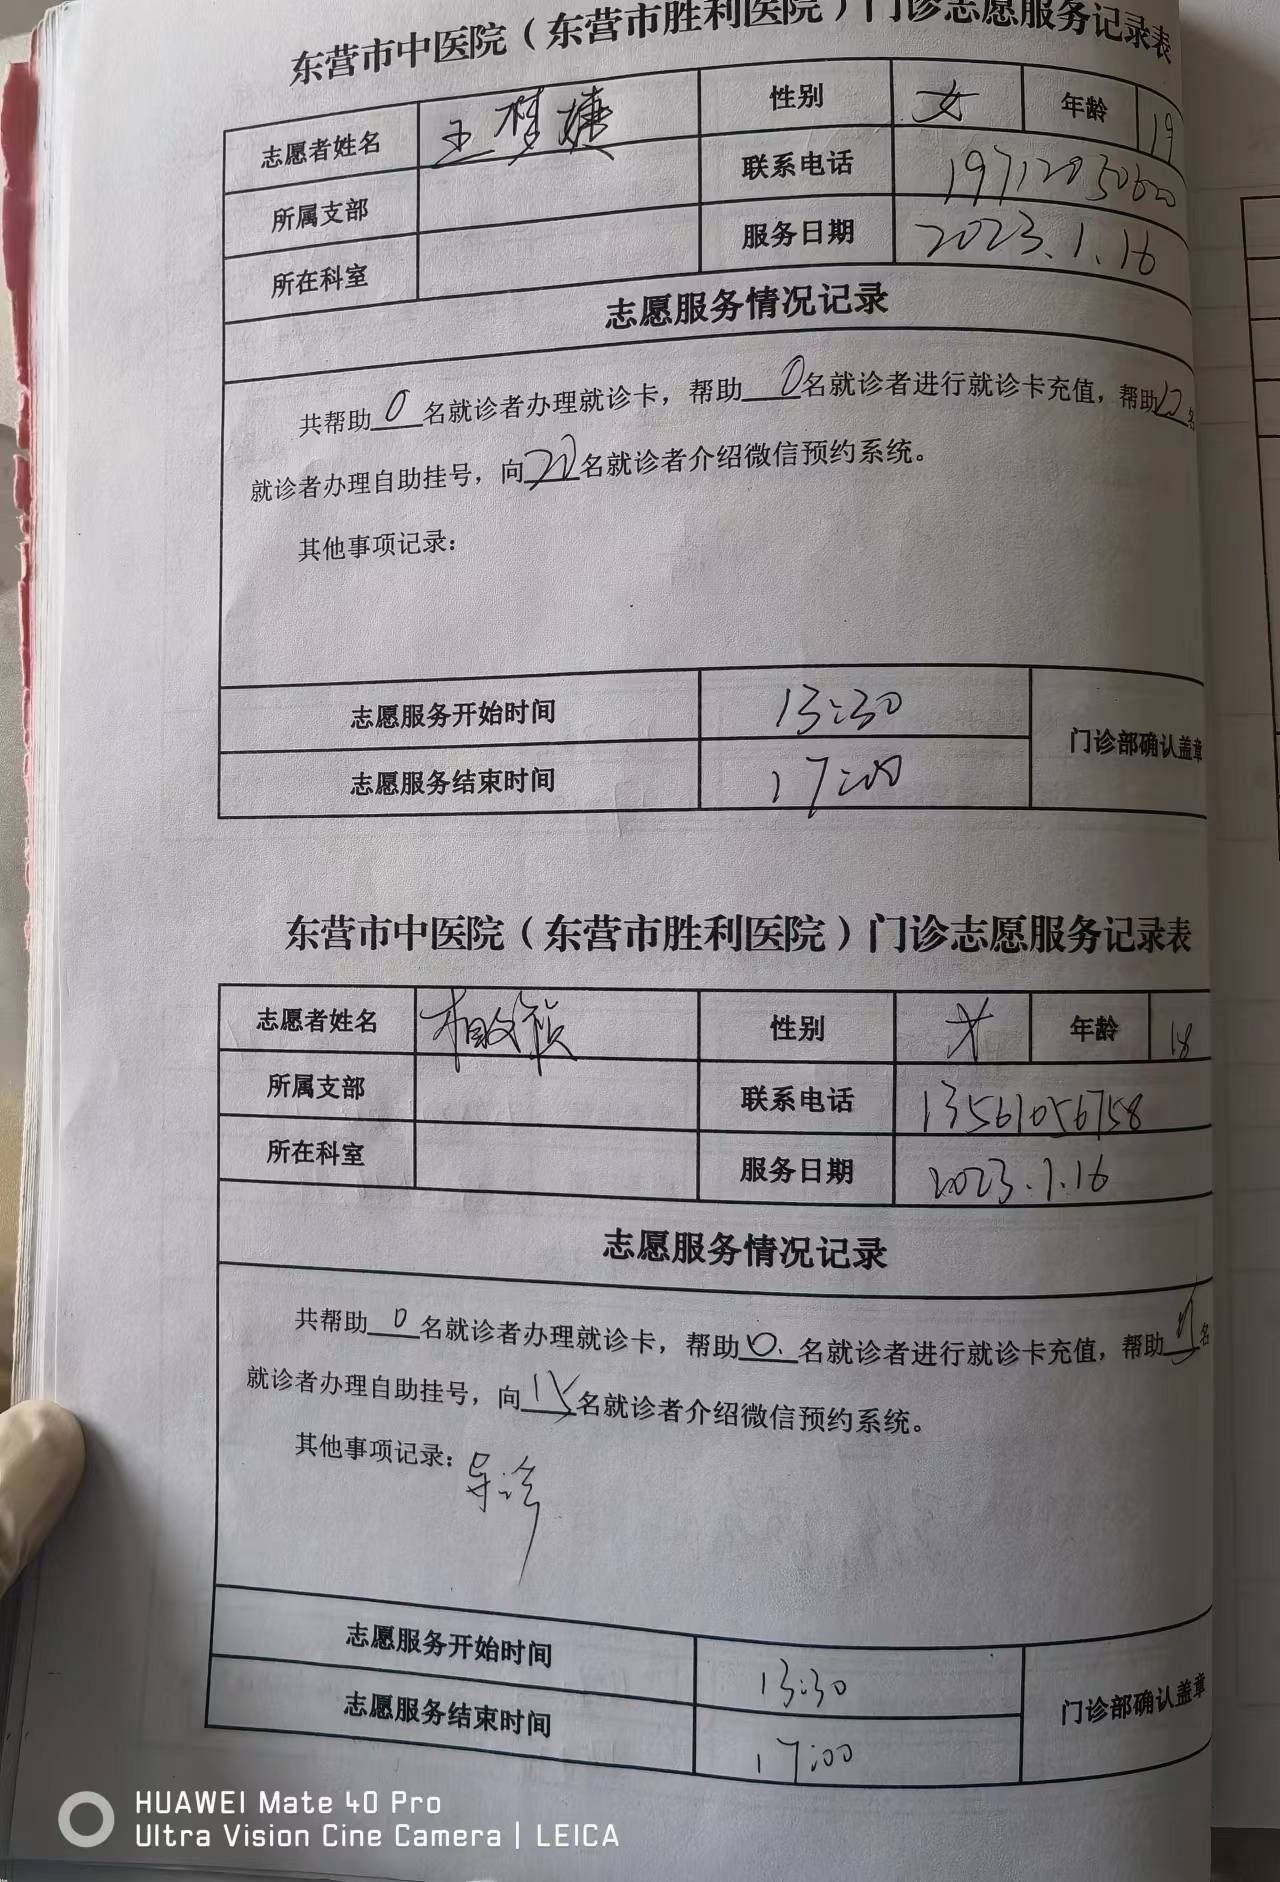 东营市中医院（东营市胜利医院）门诊志愿服务记录表
志愿者姓名 王梦婕 性别 女 年龄 19
所属支部 联系电话
所在科室 服务日期 2023.1.16
志愿服务情况记录
共帮助0名就诊者办理就诊卡，帮助0名就诊者进行就诊卡充值，帮助名
就诊者办理自助挂号，向20名就诊者介绍微信预约系统。
其他事项记录：
志愿服务开始时间 13:30 门诊部确认盖章
志愿服务结束时间 17:00
东营市中医院（东营市胜利医院）门诊志愿服务记录表
志愿者姓名 性别 女 年龄 18
所属支部 联系电话 13561056758
所在科室 服务日期 2023.1.16
志愿服务情况记录
共帮助0名就诊者办理就诊卡，帮助0名就诊者进行就诊卡充值，帮助名
就诊者办理自助挂号，向15名就诊者介绍微信预约系统。
其他事项记录：导诊
志愿服务开始时间 13:30 门诊部确认盖章
志愿服务结束时间 17:00
HUAWEI Mate 40 Pro
Ultra Vision Cine Camera | LEICA